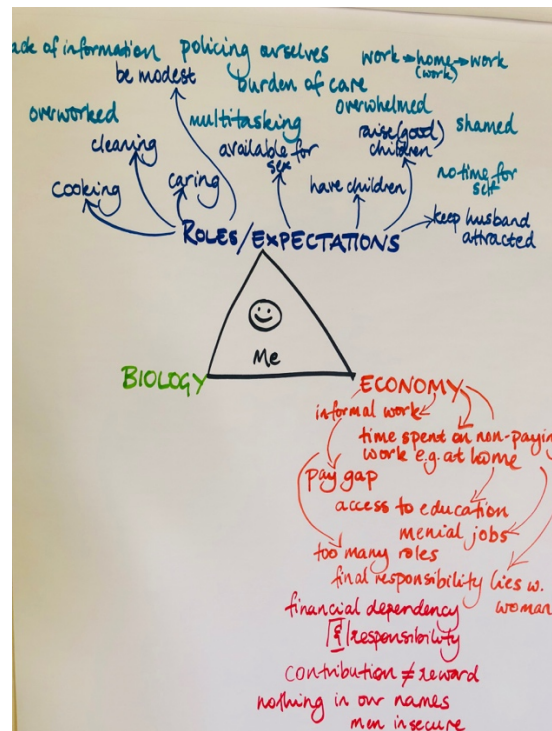 ack of information policing ourselves work → home → work
(work)
be modest burden of care
overworked multitasking overwhelmed
cleaning available for sex raise (good) children shamed
cooking caring have children no time for self
keep husband attracted
ROLES/EXPECTATIONS
Me
BIOLOGY ECONOMY
informal work
time spent on non-paying
work e.g. at home
pay gap
access to education
menial jobs
too many roles
final responsibility lies w.
woman
financial dependency
/responsibility
contribution ≠ reward
nothing in our names
men insecure